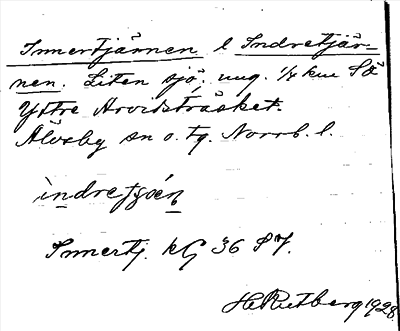 Innertjärnen l Indretjär-
nen. Liten sjö, ung. 1/2 km SÖ
Yttre Arvidsträsket.
Älvsby sn o. tg. Norrb. l.
indretjạ́ən
Innertj. kG 36 S7.
H Rutberg 1928